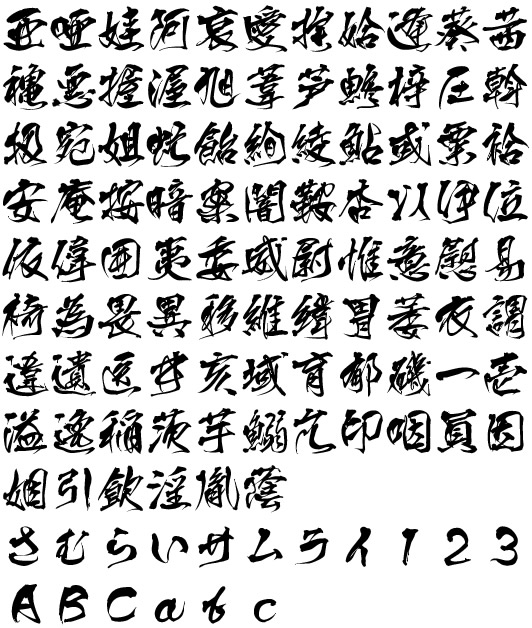 亜唖娃阿哀愛挨姶逢葵茜
穐悪握渥旭葦芦鯵梓圧斡
扱宛姐虻飴絢綾鮎或粟袷
安庵按暗案闇鞍杏以伊位
依偉囲夷委威尉惟意慰易
椅為畏異移維緯胃萎衣謂
違遺医井亥域育郁磯一壱
溢逸稲茨芋鰯允印咽員因
姻引飲淫胤蔭
さむらいサムライ123
ABCabc